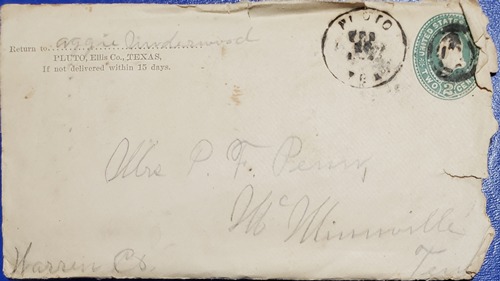 Return to Aggie Underwood
PLUTO, Ellis Co., TEXAS,
If not delivered within 15 days.
PLUTO
UNITED STATES
TWO 2 CEN
Mrs P. F. Penny
McMinnville
Tenn
Warren Co